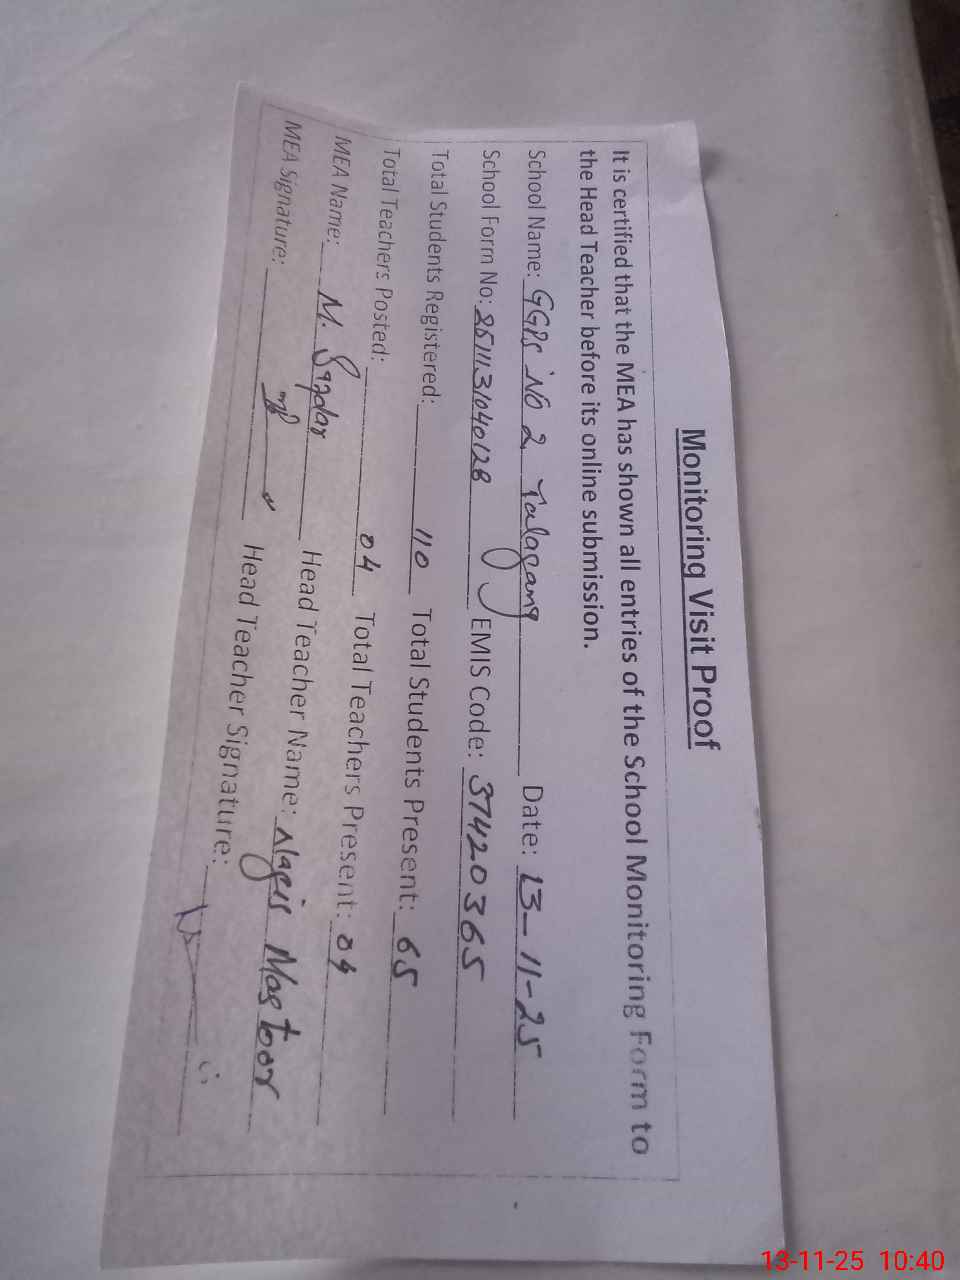 Monitoring Visit Proof
It is certified that the MEA has shown all entries of the School Monitoring Form to
the Head Teacher before its online submission.
School Name: GGPS No 2 Talagang Date: 13-11-25
School Form No: 251113104012B EMIS Code: 37420365
Total Students Registered: 110 Total Students Present: 65
Total Teachers Posted: 04 Total Teachers Present: 04
MEA Name: M. Safdar Head Teacher Name: Nagis Mastoor
MEA Signature: Head Teacher Signature:
13-11-25 10:40